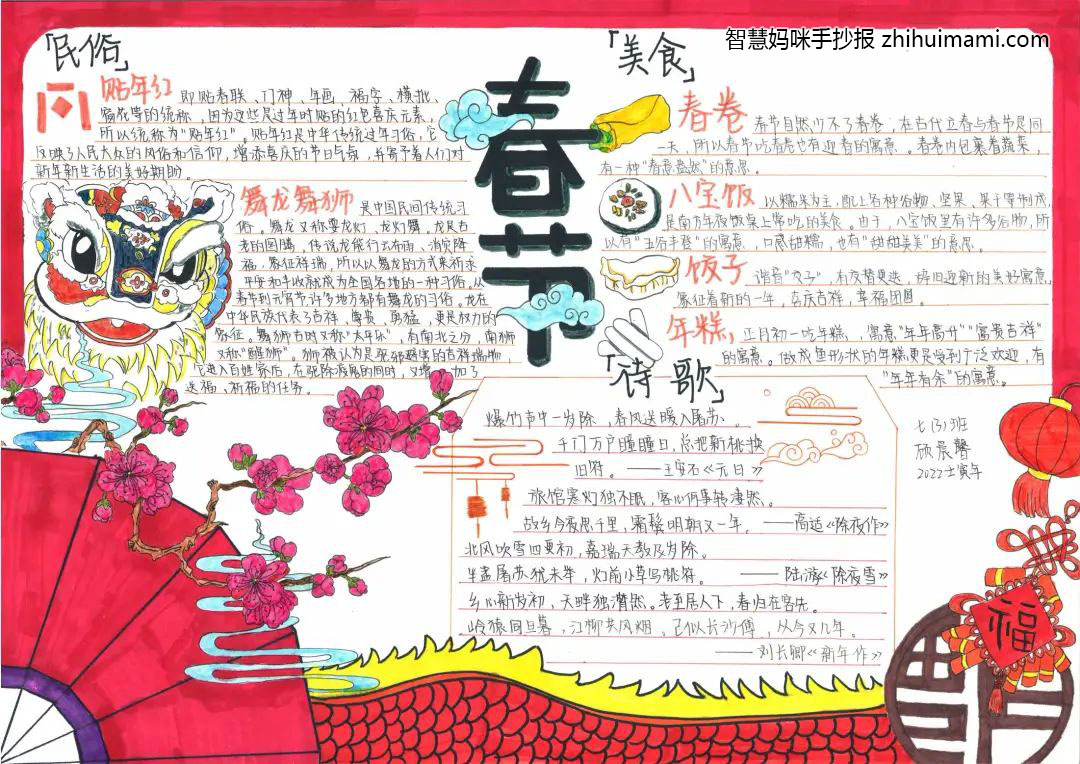 智慧妈咪手抄报 zhihuimami.com
「民俗」
贴年红 即贴春联、门神、年画、福字、横批、
窗花等的统称，因为这些是过年时贴的红色喜庆元素，
所以统称为“贴年红”。贴年红是中华传统过年习俗，它
反映了人民大众的风俗和信仰，增添喜庆的节日气氛，并寄予着人们对
新年新生活的美好期盼。
舞龙舞狮 是中国民间传统习
俗。舞龙又称耍龙灯、龙灯舞，龙是古
老的图腾，传说龙能行云布雨、消灾降
福，象征祥瑞，所以以舞龙的方式来祈求
平安和丰收就成为全国各地的一种习俗。从
春节到元宵节许多地方都有舞龙的习俗。龙在
中华民族代表了吉祥、尊贵、勇猛，更是权力的
象征。舞狮古时又称“太平乐”，有南北之分，南狮
又称“醒狮”。狮被认为是驱邪避害的吉祥瑞物
它进入百姓界后，在驱除疫展的同时，又增加了
送福、祈福的任务。
春节
「美食」
春卷 春节自然少不了春卷：在古代立春与春节是同
一天，所以春节吃春卷也有迎春的寓意。春卷内包裹着蔬菜，
有一种“春意盎然”的意思。
八宝饭 以糯米为主，配上各种谷物、坚果、果干等制成，
是南方年夜饭桌上常吃的美食。由于，八宝饭里有许多谷物，所
以有“五谷丰登”的寓意，口感甜糯，也有“甜甜美美”的意思。
饺子 谐音“交子”，有交替更迭，辞旧迎新的美好寓意，
象征着新的一年，喜庆吉祥，幸福团圆。
年糕， 正月初一吃年糕，寓意“年年高升”“富贵吉祥”
的寓意。做成鱼形状的年糕更是受到广泛欢迎，有
“年年有余”的寓意。
「诗歌」
爆竹声中一岁除，春风送暖入屠苏。
千门万户曈曈日，总把新桃换
旧符。 ——王安石《元日》
旅馆寒灯独不眠，客心何事转凄然。
故乡今夜思千里，霜鬓明朝又一年。 ——高适《除夜作》
北风吹雪四更初，嘉瑞天教及岁除。
半盏屠苏犹未举，灯前小草写桃符。 ——陆游《除夜雪》
乡心新岁初，天畔独潸然。老至居人下，春归在客先。
岭猿同旦暮，江柳共风烟，已似长沙傅，从今又几年。
——刘长卿《新年作》
七(3)班
硕晨馨
2022壬寅年
福